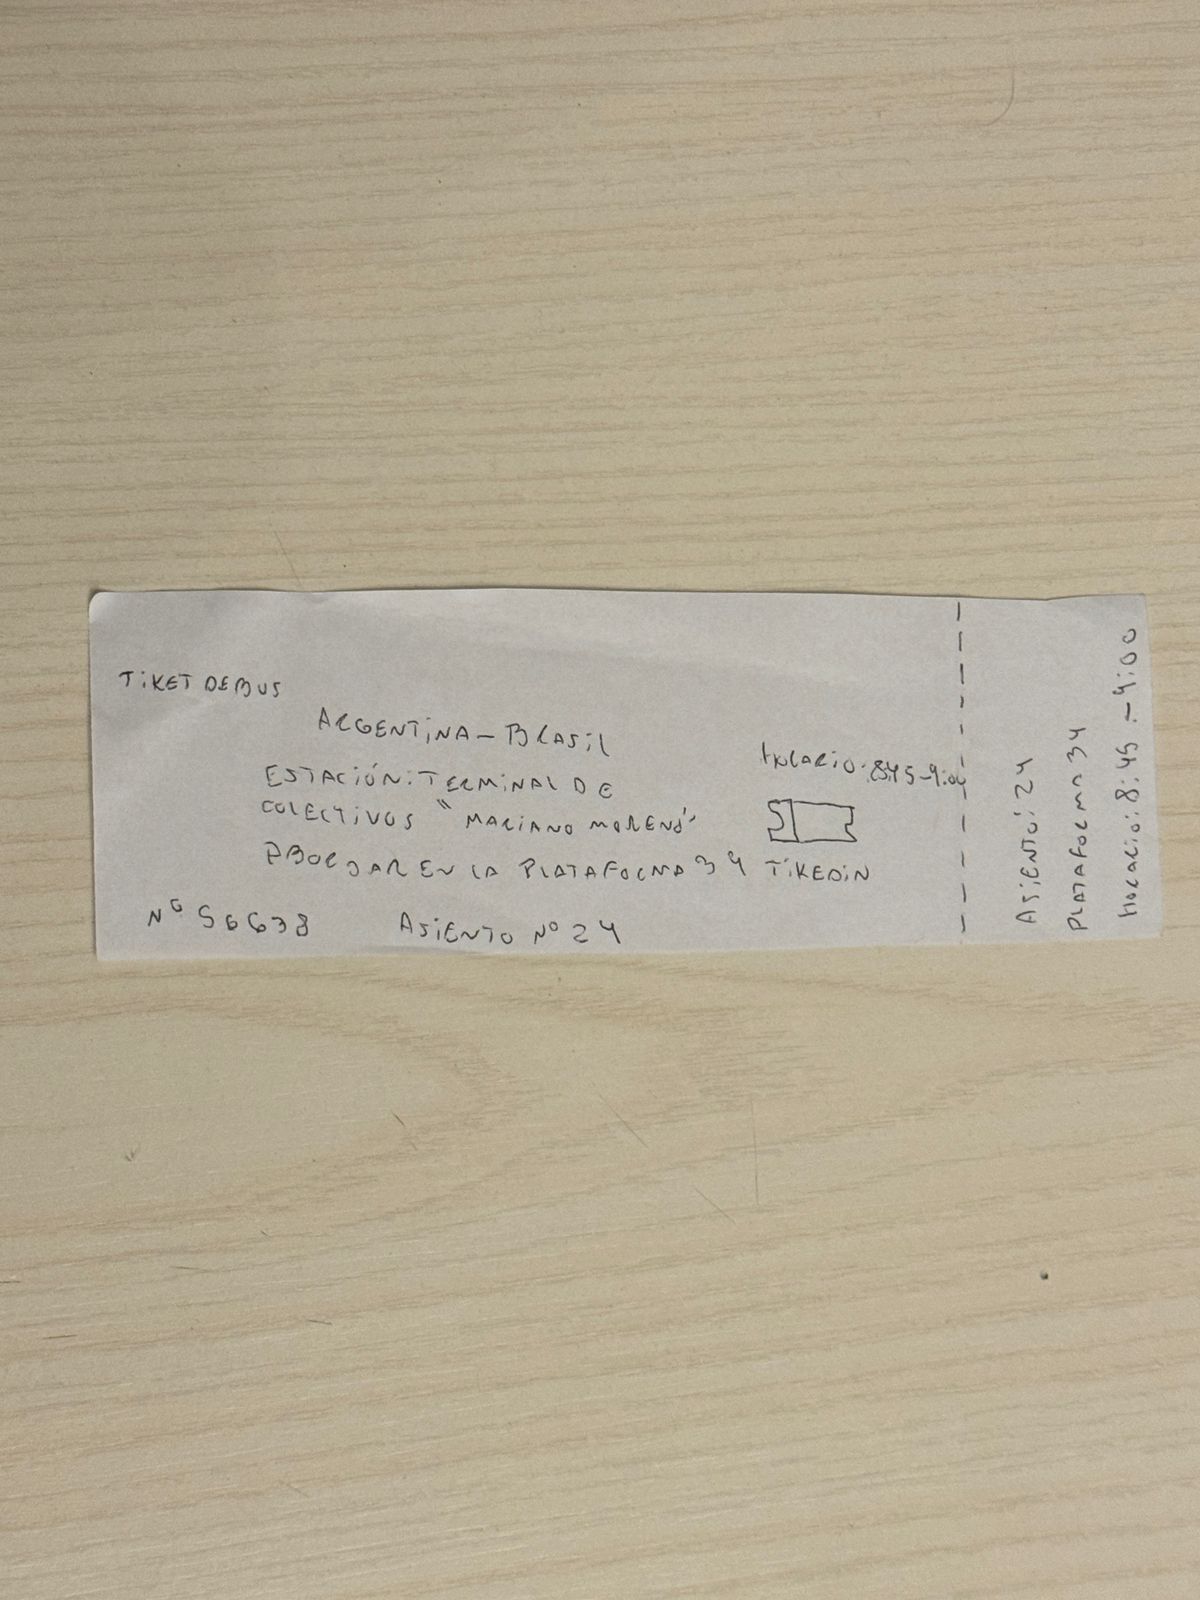 TiKET DE BUS
ARGENTINA - BRASIL
ESTACIÓN: TERMINAL DE
COLECTIVOS "MARIANO MORENO"
ABORDAR EN LA PLATAFORMA 34
Nº 56638
ASIENTO Nº 24
HORARIO: 8:45 - 9:00
TIKEDIN
ASIENTO: 24
PLATAFORMA 34
HORARIO: 8:45 - 9:00